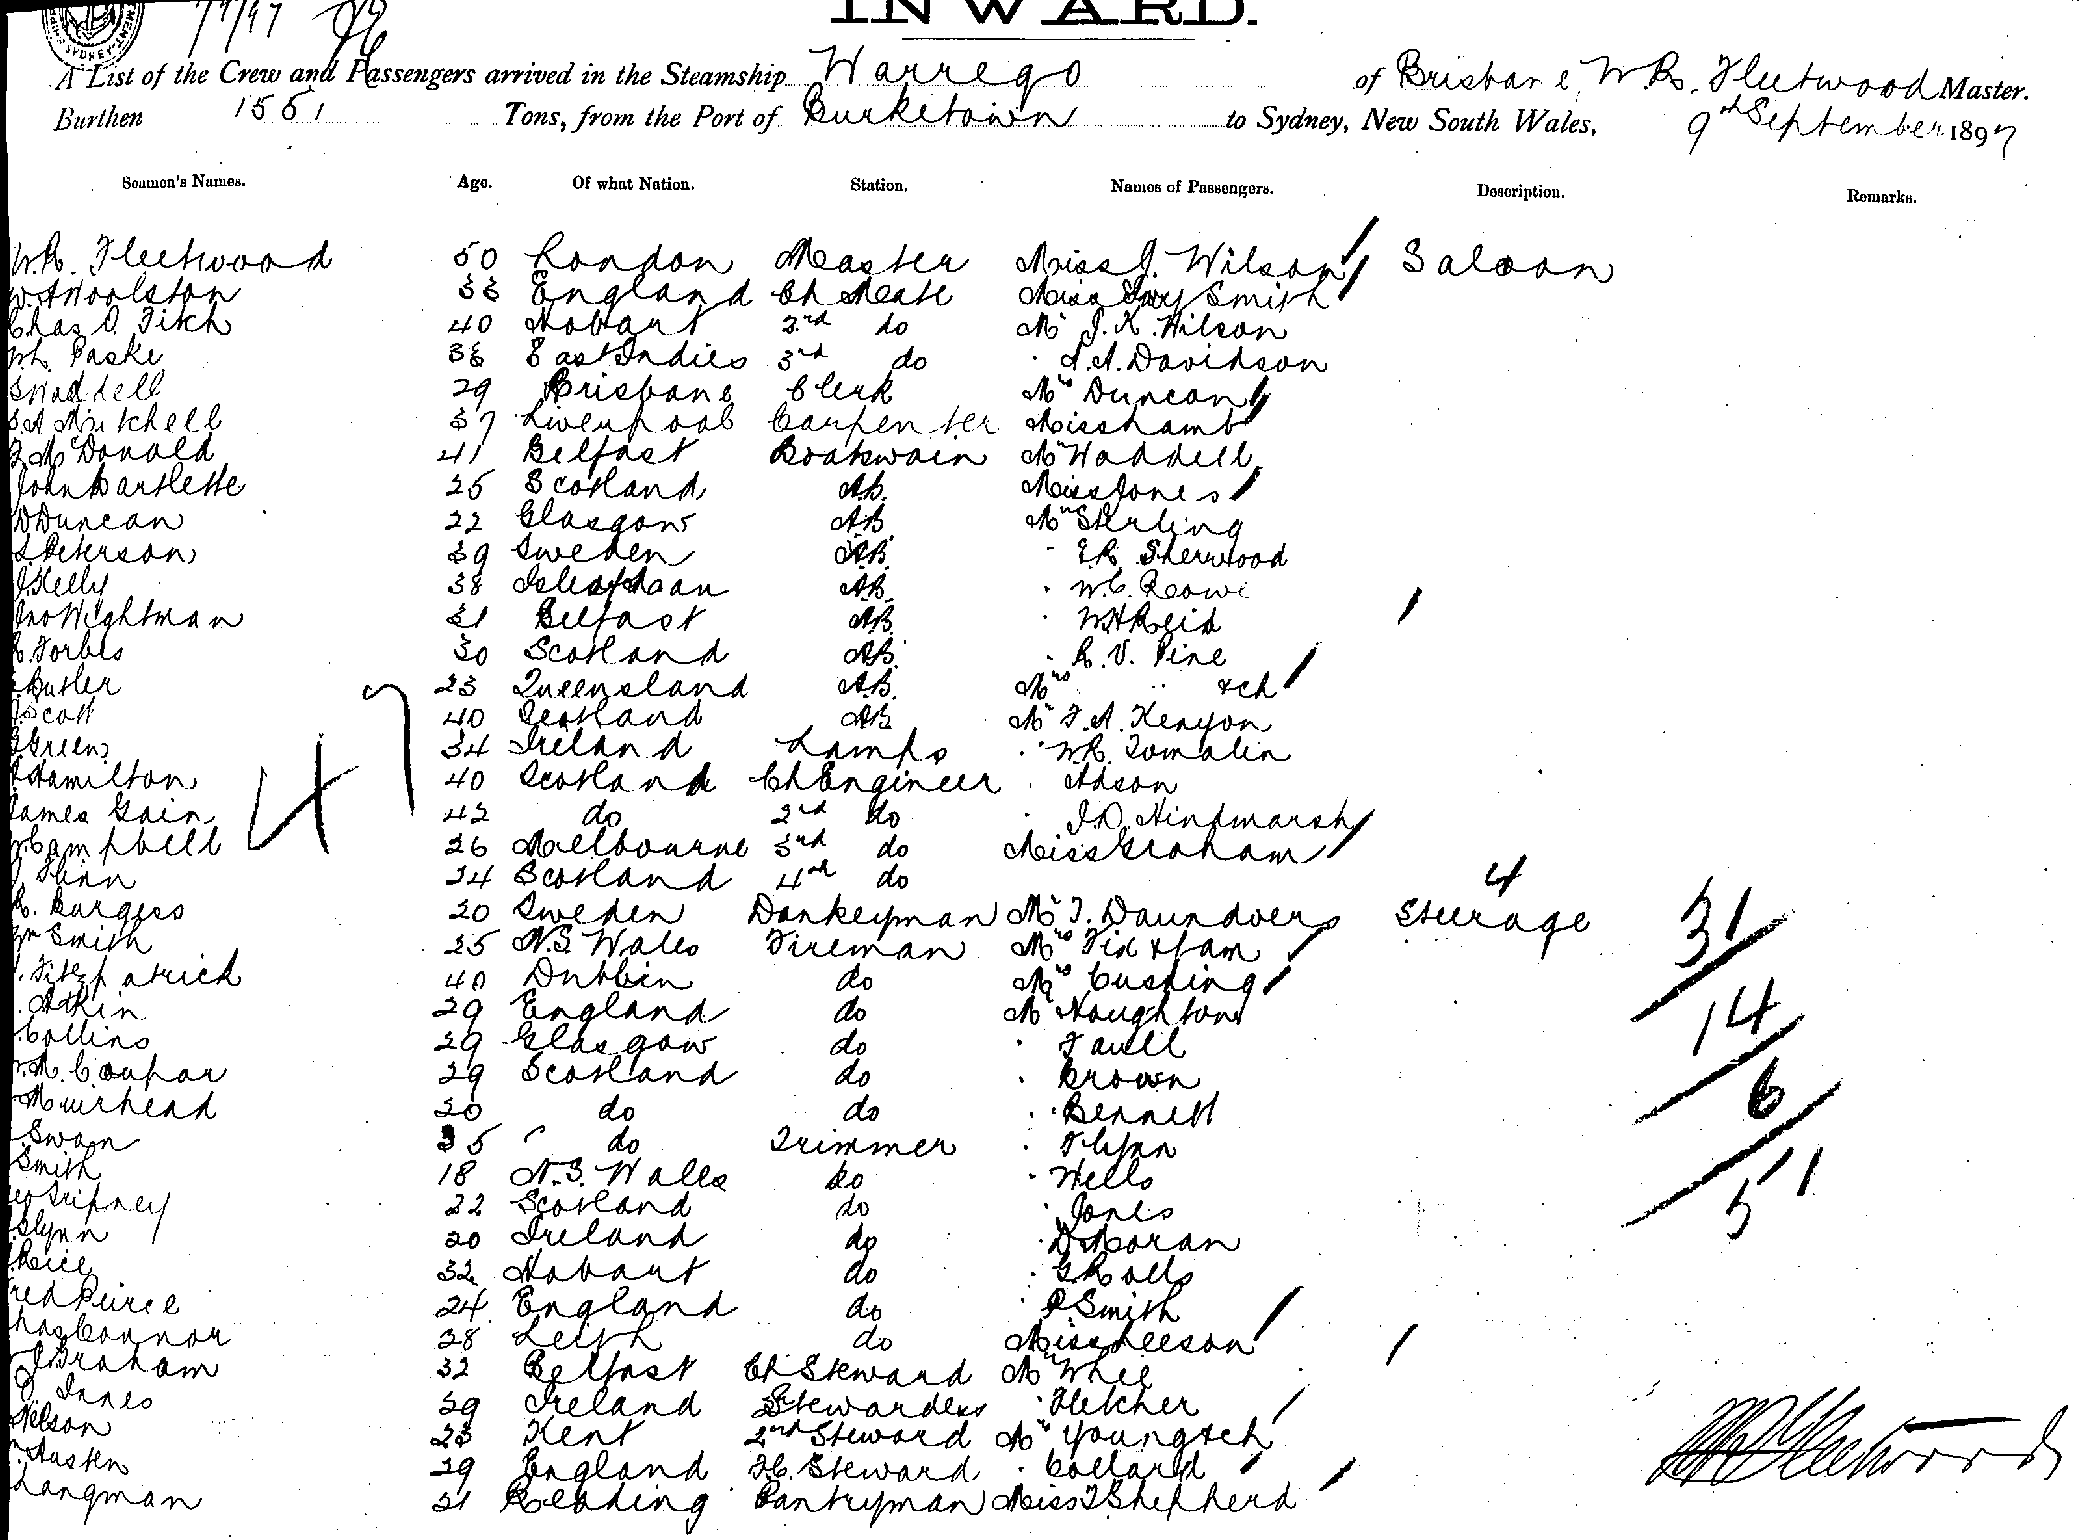 INWARD.
A List of the Crew and Passengers arrived in the Steamship Warrego of Brisbane, W.R. Fleetwood Master.
Burthen 1551 Tons, from the Port of Burketown to Sydney, New South Wales, 9th September 1897
Seamen's Names. Age. Of what Nation. Station. Names of Passengers. Description. Remarks.
W.R. Fleetwood 50 London Master Miss J. Wilson Saloon
Woolston 33 England Ch Mate Miss Smith
Chas O. Fitch 40 Hobart 2nd do Mr J. K. Wilson
Paske 38 East Indies 3rd do A. A. Davidson
Waddell 29 Brisbane Clerk Mrs Duncan
S A Mitchell 37 Liverpool Carpenter Miss Lamb
McDonald 41 Belfast Boatswain Mr Waddell
John Bartlette 25 Scotland A.B. Miss Jones
D Duncan 22 Glasgow AB Mr Stirling
Peterson 39 Sweden A.B. E.R. Sherwood
J. Kelly 38 Isle of Man A.B. W.C. Rowe
Jno Wightman 31 Belfast AB. W H Reid
Forbes 30 Scotland AB. R. V. Pine
Butler 23 Queensland A.B. Mrs " & ch
J Scott 40 Scotland AB Mr F. A. Kenyon
J Green 34 Ireland Lamps W.R. Tomalin
Hamilton 40 Scotland Ch Engineer Adson
James Gain 42 do 2nd do J.D. Hindmarsh
Campbell 26 Melbourne 3rd do Miss Graham
24 Scotland 4th do
47
4
R. Burgess 20 Sweden Donkeyman Mr J. Daundvers Steerage 31
Wm Smith 25 N.S. Wales Fireman Mrs Fix & fam
Fitzpatrick 40 Dublin do Mrs Cushing
Atkin 29 England do Mr Noughton 14
Collins 29 Glasgow do
M. Coupar 29 Scotland do Brown 6
Muirhead 20 do do Bennett
Swan 35 do Trimmer Flynn
Smith 18 N.S. Wales do Wells 51
Geo Tripney 22 Scotland do Jones
Flynn 20 Ireland do D Moran
Rice 32 Hobart do G Rolls
Fred Peirce 24 England do P Smith
Chas Connor 28 Leith do Miss Leeson
J Graham 32 Belfast Ch Steward Mr
Innes 29 Ireland Stewardess Fletcher
Nelson 23 Kent 2nd Steward Mrs Young & ch
Hasten 29 England F.C. Steward Collard
Langman 21 Reading Pantryman Miss J Shepherd
W R Fleetwood